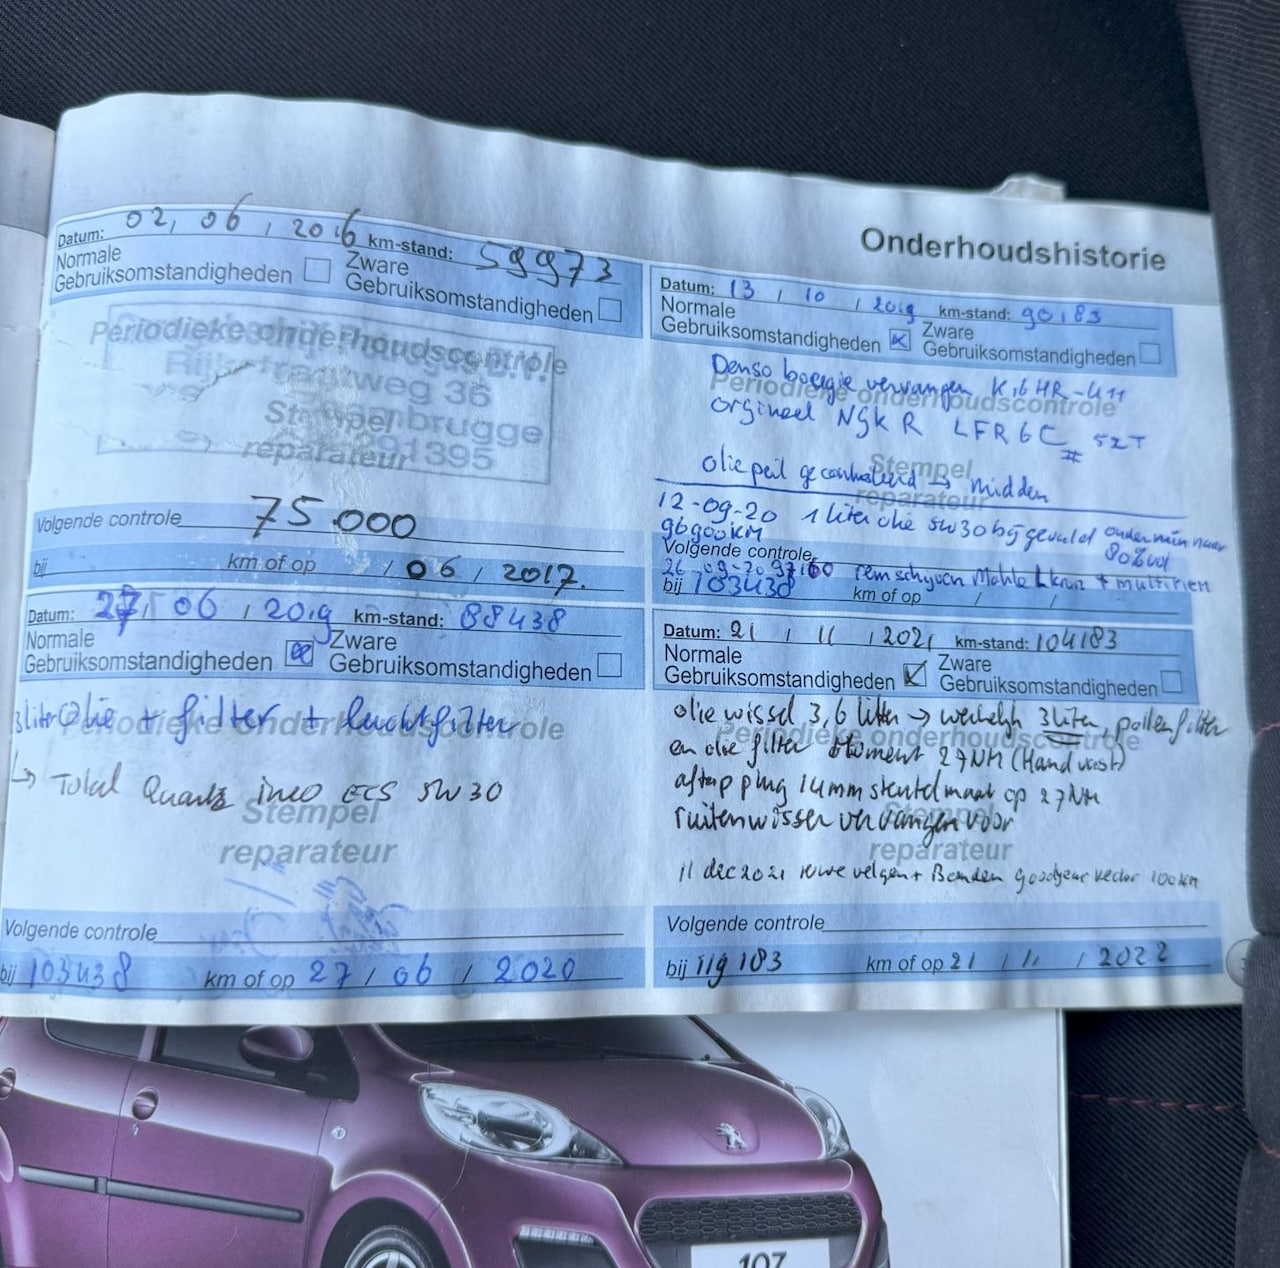 Onderhoudshistorie
Datum: 02, 06, 2016 km-stand: 59973
Normale
Gebruiksomstandigheden
Zware
Gebruiksomstandigheden
Periodieke onderhoudscontrole
weg 36
Stempel
brugge
reparateur
1395
Volgende controle 75.000
bij km of op / 06 / 2017.
Datum: 27, 06, 2019 km-stand: 88438
Normale
Gebruiksomstandigheden
Zware
Gebruiksomstandigheden
3 liter Olie + filter + luchtfilter
Periodieke onderhoudscontrole
↳ Total Quartz ineo ECS 5W30
Stempel
reparateur
Volgende controle
bij 103438 km of op 27 / 06 / 2020
Datum: 13 / 10 / 2019 km-stand: 90183
Normale
Gebruiksomstandigheden
Zware
Gebruiksomstandigheden
Denso boegie vervangen K16HR-U11
Periodieke onderhoudscontrole
orgineel NGK R LFR6C
olie peil gecontroleerd → midden
Stempel
reparateur
12-09-20 1 liter olie 5W30 bij gevuld onder min naar
96900KM
Volgende controle
26-09-20 97160 remschyven Mahle + multirien
bij 103438 km of op / /
Datum: 21 / 11 / 2021 km-stand: 104183
Normale
Gebruiksomstandigheden
Zware
Gebruiksomstandigheden
olie wissel 3,6 liter → 3 liter, pollenfilter
Periodieke onderhoudscontrole
en olie filter moment 27NM (Handvast)
aftap plug 14mm sleutelmaat op 27NM
Stempel
ruitenwisser vervangen voor
reparateur
11 dec 2021 velgen + Banden Goodyear vector 100km
Volgende controle
bij 119183 km of op 21 / 11 / 2022
107